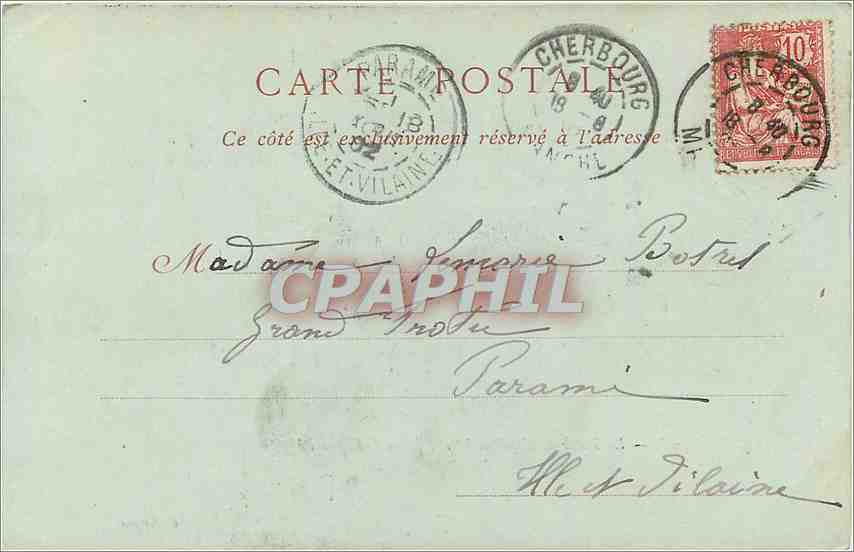 CARTE POSTALE
Ce côté est exclusivement réservé à l'adresse
PARAMÉ
18
02
ILLE-ET-VILAINE
CHERBOURG
8 40
18
MANCHE
10
CHERBOURG
8 40
18
Madame Lemarié Botrel
CPAPHIL
Grand
Paramé
Ille et Vilaine